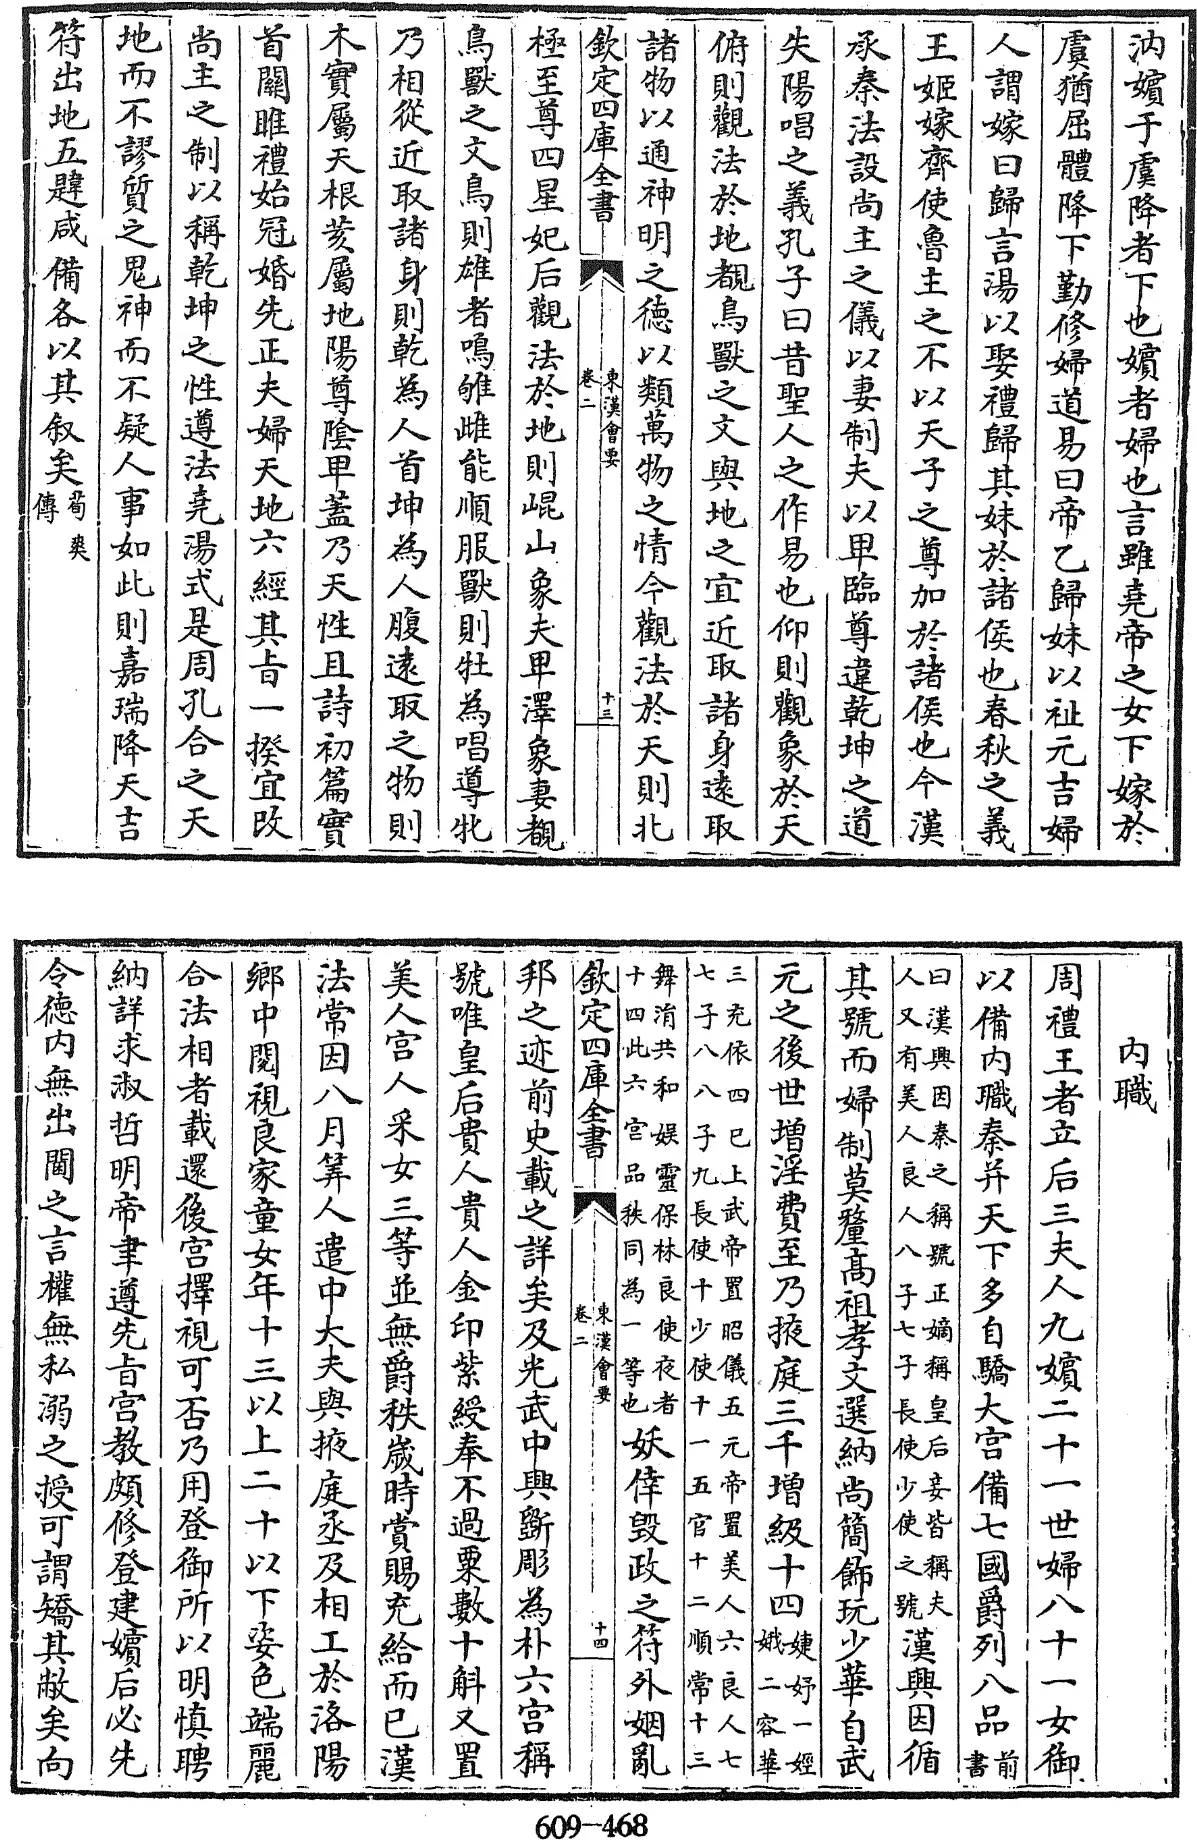 汭嬪于虞降者下也嬪者婦也言雖堯帝之女下嫁於
虞猶屈體降下勤修婦道易曰帝乙歸妹以祉元吉婦
人謂嫁曰歸言湯以娶禮歸其妹於諸侯也春秋之義
王姬嫁齊使魯主之不以天子之尊加於諸侯也今漢
承秦法設尚主之儀以妻制夫以卑臨尊違乾坤之道
失陽唱之義孔子曰昔聖人之作易也仰則觀象於天
俯則觀法於地覩鳥獸之文與地之宜近取諸身遠取
諸物以通神明之德以類萬物之情今觀法於天則北
欽定四庫全書
東漢會要
卷二
十三
極至尊四星妃后觀法於地則崐山象夫卑澤象妻覩
鳥獸之文鳥則雄者鳴雊雌能順服獸則牡為唱導牝
乃相從近取諸身則乾為人首坤為人腹遠取之物則
木實屬天根荄屬地陽尊陰卑蓋乃天性且詩初篇實
首關雎禮始冠婚先正夫婦天地六經其㫖一揆宜改
尚主之制以稱乾坤之性遵法堯湯式是周孔合之天
地而不謬質之鬼神而不疑人事如此則嘉瑞降天吉
符出地五韙咸備各以其叙矣荀爽
傳
內職
周禮王者立后三夫人九嬪二十一世婦八十一女御
以備內職秦并天下多自驕大宫備七國爵列八品前
書
曰漢興因秦之稱號正嫡稱皇后妾皆稱夫
人又有美人良人八子七子長使少使之號漢興因循
其號而婦制莫釐高祖孝文選納尚簡飾玩少華自武
元之後世增淫費至乃掖庭三千增級十四婕妤一娙
娥二容華
三充依四已上武帝置昭儀五元帝置美人六良人七
七子八八子九長使十少使十一五官十二順常十三
舞涓共和娱靈保林良使夜者
十四此六官品秩同為一等也妖倖毁政之符外姻亂
欽定四庫全書
東漢會要
卷二
十四
邦之迹前史載之詳矣及光武中興斲彫為朴六宫稱
號唯皇后貴人貴人金印紫綬奉不過粟數十斛又置
美人宫人采女三等並無爵秩歲時賞賜充給而已漢
法常因八月筭人遣中大夫與掖庭丞及相工於洛陽
鄉中閱視良家童女年十三以上二十以下姿色端麗
合法相者載還後宫擇視可否乃用登御所以明慎聘
納詳求淑哲明帝聿遵先㫖宫教頗修登建嬪后必先
令徳內無出閫之言權無私溺之授可謂矯其敝矣向
609-468